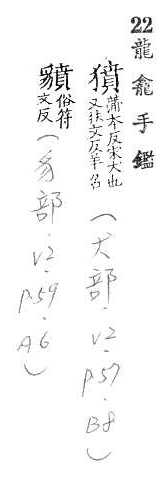 22 龍龕手鑑
獖 蒲本反家犬也
又扶文反羊名
(犬部.V2.P57.B8)
俗符
文反
(豸部.V2.P59.A6)